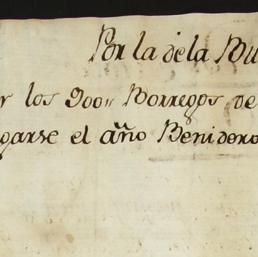 Por la de la Bu
y los 900,, Borregos de
garse el año Benidero